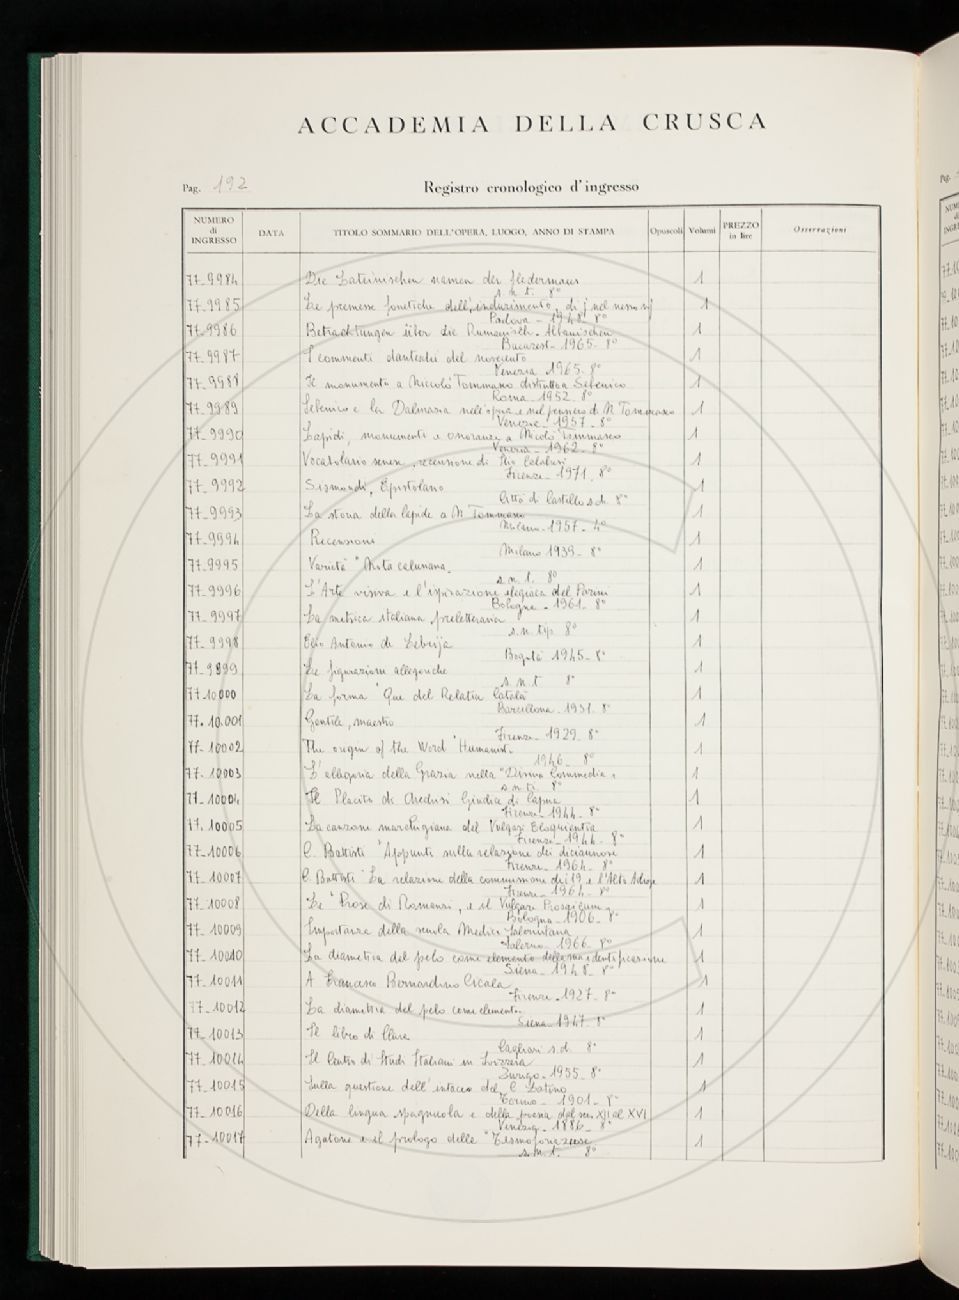 ACCADEMIA DELLA CRUSCA
Pag. 192
Registro cronologico d'ingresso
NUMERO di INGRESSO DATA TITOLO SOMMARIO DELL'OPERA, LUOGO, ANNO DI STAMPA Opuscoli Volumi PREZZO in lire Osservazioni
77-9984 Die Lateinischen namen der fledermaus 1
s.n.t. 8°
77-9985 Le premesse fonetiche dell'indurimento di j nel 1
Padova - 1948 8°
77-9986 Betrachtungen über die Rumänisch-Albanischen 1
Bucarest - 1965 - 8°
77-9987 I commenti danteschi del novecento 1
Venezia 1965 - 8°
77-9988 Il monumento a Niccolò Tommaseo distrutto a Sebenico 1
Roma - 1952 - 8°
77-9989 Sebenico e la Dalmazia nell'opera e nel pensiero di N. Tommaseo 1
Venezia - 1957 - 8°
77-9990 Lapidi, monumenti e onoranze a Nicolò Tommaseo 1
Venezia - 1962 - 8°
77-9991 Vocabolario senese, recensione di 1
Firenze - 1971 - 8°
77-9992 Sismondi, Epistolario 1
Città di Castello s.d. 8°
77-9993 La storia della lapide a N. Tommaseo 1
Milano - 1957 - 4°
77-9994 Recensioni 1
Milano 1939 - 8°
77-9995 Varietà "Nota 1
s.n.t. 8°
77-9996 L'Arte visiva e l'ispirazione elegiaca del Parini 1
Bologna - 1961 - 8°
77-9997 La metrica italiana preletteraria 1
s.n. tip. 8°
77-9998 Elio Antonio de Lebrija 1
Bogotà 1945 - 8°
77-9999 Le figurazioni allegoriche 1
s.n.t 8°
77-10000 La forma "Que del Relatiu Català 1
Barcellona - 1931 - 8°
77-10.001 Gentile, maestro 1
Firenze - 1929 - 8°
77-10002 The origin of the Word "Humanist" 1
1946 - 8°
77-10003 L'allegoria della Grazia nella "Divina Commedia" 1
s.n.t. 8°
77-10004 Il Placito di Arechisi Giudice di Capua 1
Firenze - 1944 - 8°
77-10005 La canzone marchigiana del Vulgari Eloquientia 1
Firenze - 1944 - 8°
77-10006 C. Battisti "Appunti sulla relazione dei diciannove 1
Firenze - 1964 - 8°
77-10007 C. Battisti "La relazione della commissione dei 19 e l'Alto Adige 1
Firenze - 1964 - 8°
77-10008 Le "Prose di Romanzi, e il Vulgare Prosaicum 1
Bologna - 1906 - 8°
77-10009 Importanza della scuola Medica Salernitana 1
Salerno - 1966 - 8°
77-10010 La diametica del pelo come elemento della sua identificazione 1
Siena - 1948 - 8°
77-10011 A Francesco Bernardino Cicala 1
Firenze - 1927 - 8°
77-10012 La diametica del pelo come elemento 1
Siena - 1947 - 8°
77-10013 Il libro di 1
Cagliari s.d. 8°
77-10014 Il Centro di Studi Italiani in Svizzera 1
Zurigo - 1955 - 8°
77-10015 Sulla questione dell'intacco del C Latino 1
Torino - 1901 - 8°
77-10016 Della lingua spagnuola e della poesia dal sec. XII al XVI 1
Venezia - 1886 - 8°
77-10017 Agatone e il prologo delle "Tesmoforiazuse 1
s.n.t. 8°